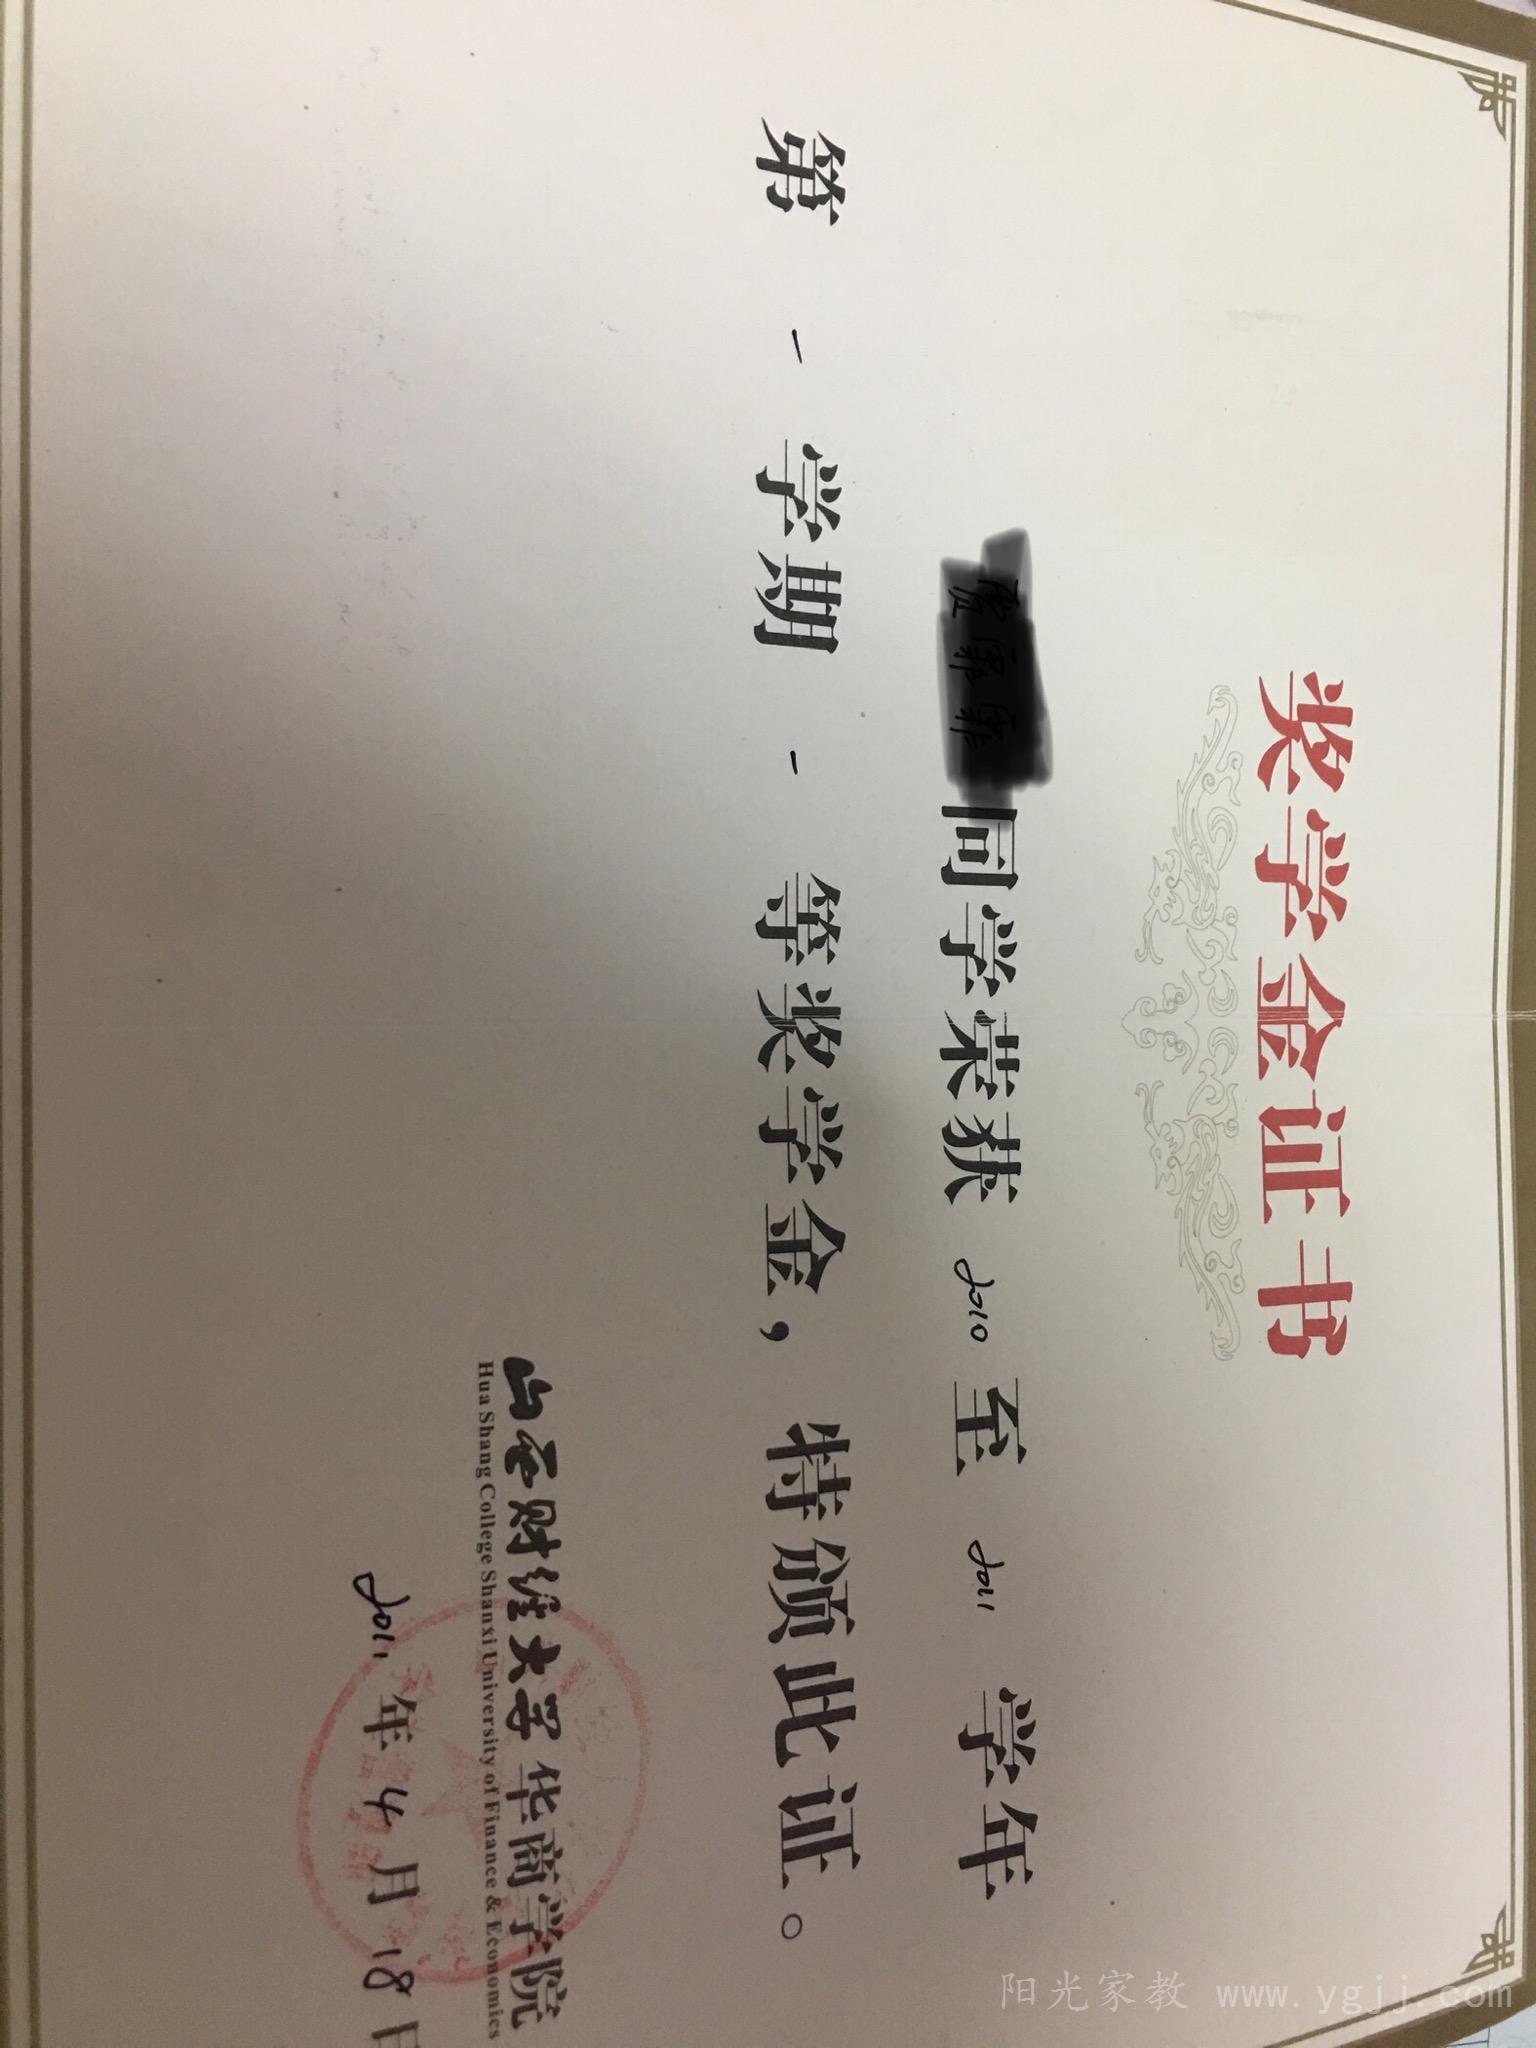 奖学金证书
同学荣获 2010 至 2011 学年
第 一 学期 一 等奖学金，特颁此证。
山西财经大学华商学院
Hua Shang College Shanxi University of Finance & Economics
2011 年 4 月 18 日
阳光家教 www.ygjj.com